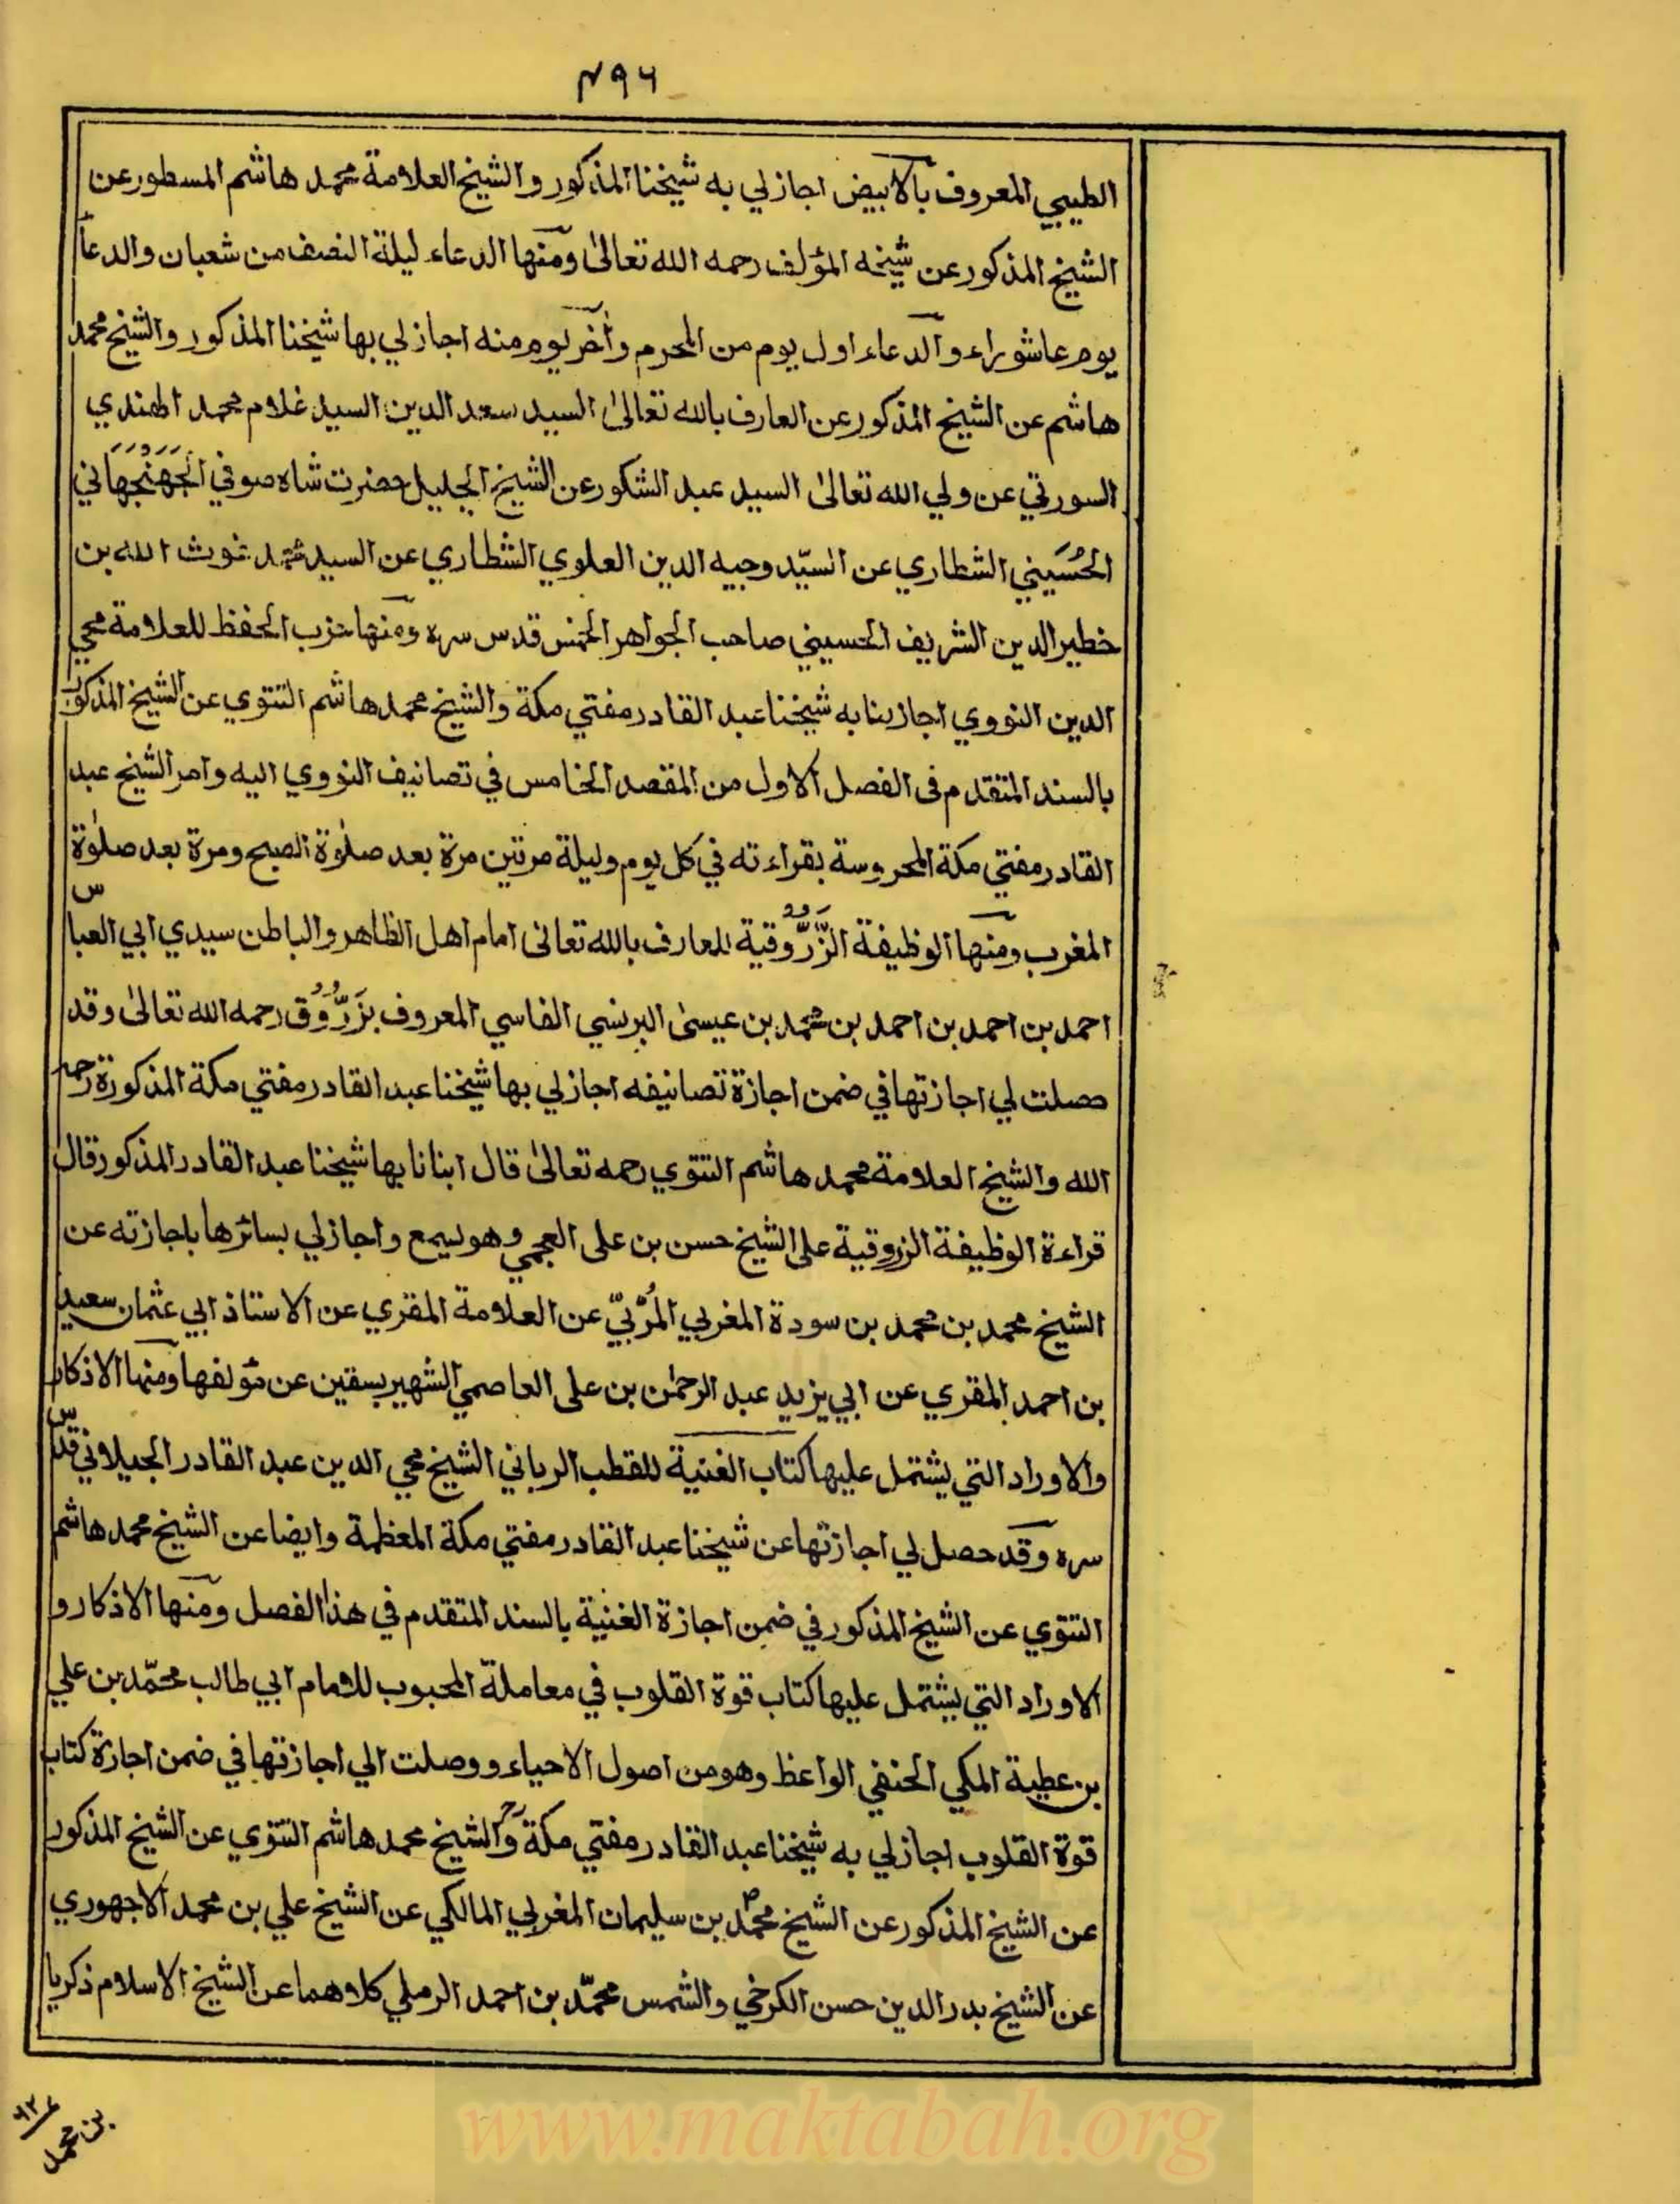 ٤٩٦
الطيبي المعروف بالابيض اجاز لي به شيخنا المذكور والشيخ العلامة محمد هاشم المسطور عن
الشيخ المذكور عن شيخه المؤلف رحمه الله تعالىٰ ومنها الدعاء ليلة النصف من شعبان والدعاء
يوم عاشوراء والدعاء اول يوم من المحرم وآخر يوم منه اجاز لي بها شيخنا المذكور والشيخ محمد
هاشم عن الشيخ المذكور عن العارف بالله تعالىٰ السيد سعد الدين السيد غلام محمد الهندي
السورتي عن ولي الله تعالىٰ السيد عبد الشكور عن الشيخ الجليل حضرت شاه صوفي الجَهَنْجُهَاني
الحُسَيني الشطاري عن السيّد وجيه الدين العلوي الشطاري عن السيد محمد غوث الله بن
خطير الدين الشريف الحسيني صاحب الجواهر الخمس قدس سره ومنها حزب الحفظ للعلامة محي
الدين النووي اجازنا به شيخنا عبد القادر مفتي مكة والشيخ محمد هاشم التتوي عن الشيخ المذكور
بالسند المتقدم فى الفصل الاول من المقصد الخامس في تصانيف النووي اليه وامر الشيخ عبد
القادر مفتي مكة المحروسة بقراءته في كل يوم وليلة مرتين مرة بعد صلوٰة الصبح ومرة بعد صلوٰة
المغرب ومنها الوظيفة الزَّرُّوقية للعارف بالله تعالىٰ امام اهل الظاهر والباطن سيدي ابي العباس
احمد بن احمد بن احمد بن محمد بن عيسىٰ البرنسي الفاسي المعروف بزَرُّوُق رحمه الله تعالىٰ وقد
حصلت لي اجازتها في ضمن اجازة تصانيفه اجاز لي بها شيخنا عبد القادر مفتي مكة المذكورة رحمه
الله والشيخ العلامة محمد هاشم التتوي رحمه تعالىٰ قال انبانا بها شيخنا عبد القادر المذكور قال
قراءة الوظيفة الزروقية على الشيخ حسن بن على العجمي وهو يسمع واجاز لي بسائرها باجازته عن
الشيخ محمد بن محمد بن سودة المغربي المُرّبيّ عن العلامة المقري عن الاستاذ ابي عثمان سعيد
بن احمد المقري عن ابي يزيد عبد الرحمٰن بن على العاصمي الشهير بسقين عن مؤلفها ومنها الاذكار
والاوراد التي يشتمل عليها كتاب الغنية للقطب الرباني الشيخ محي الدين عبد القادر الجيلاوني قدس
سره وقد حصل لي اجازتها عن شيخنا عبد القادر مفتي مكة المعظمة وايضا عن الشيخ محمد هاشم
التتوي عن الشيخ المذكور في ضمن اجازة الغنية بالسند المتقدم في هذا الفصل ومنها الاذكار و
الاوراد التي يشتمل عليها كتاب قوة القلوب في معاملة المحبوب للامام ابي طالب محمّد بن علي
بن عطية المكي الحنفي الواعظ وهو من اصول الاحياء ووصلت الي اجازتها في ضمن اجازة كتاب
قوة القلوب اجاز لي به شيخنا عبد القادر مفتي مكة والشيخ محمد هاشم التتوي عن الشيخ المذكور
عن الشيخ المذكور عن الشيخ محمد بن سليمان المغربي المالكي عن الشيخ علي بن محمد الاجهوري
عن الشيخ بدر الدين حسن الكرخي والشمس محمّد بن احمد الرملي كلاوهما عن الشيخ الاسلام ذكريا
بن محمد
www.maktabah.org